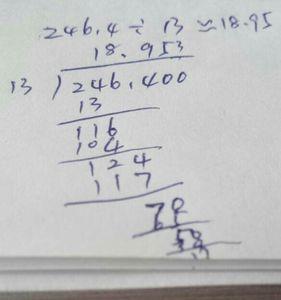 246.4 ÷ 13 ≈ 18.95
18.953
13 ) 246.400
13
116
104
124
117